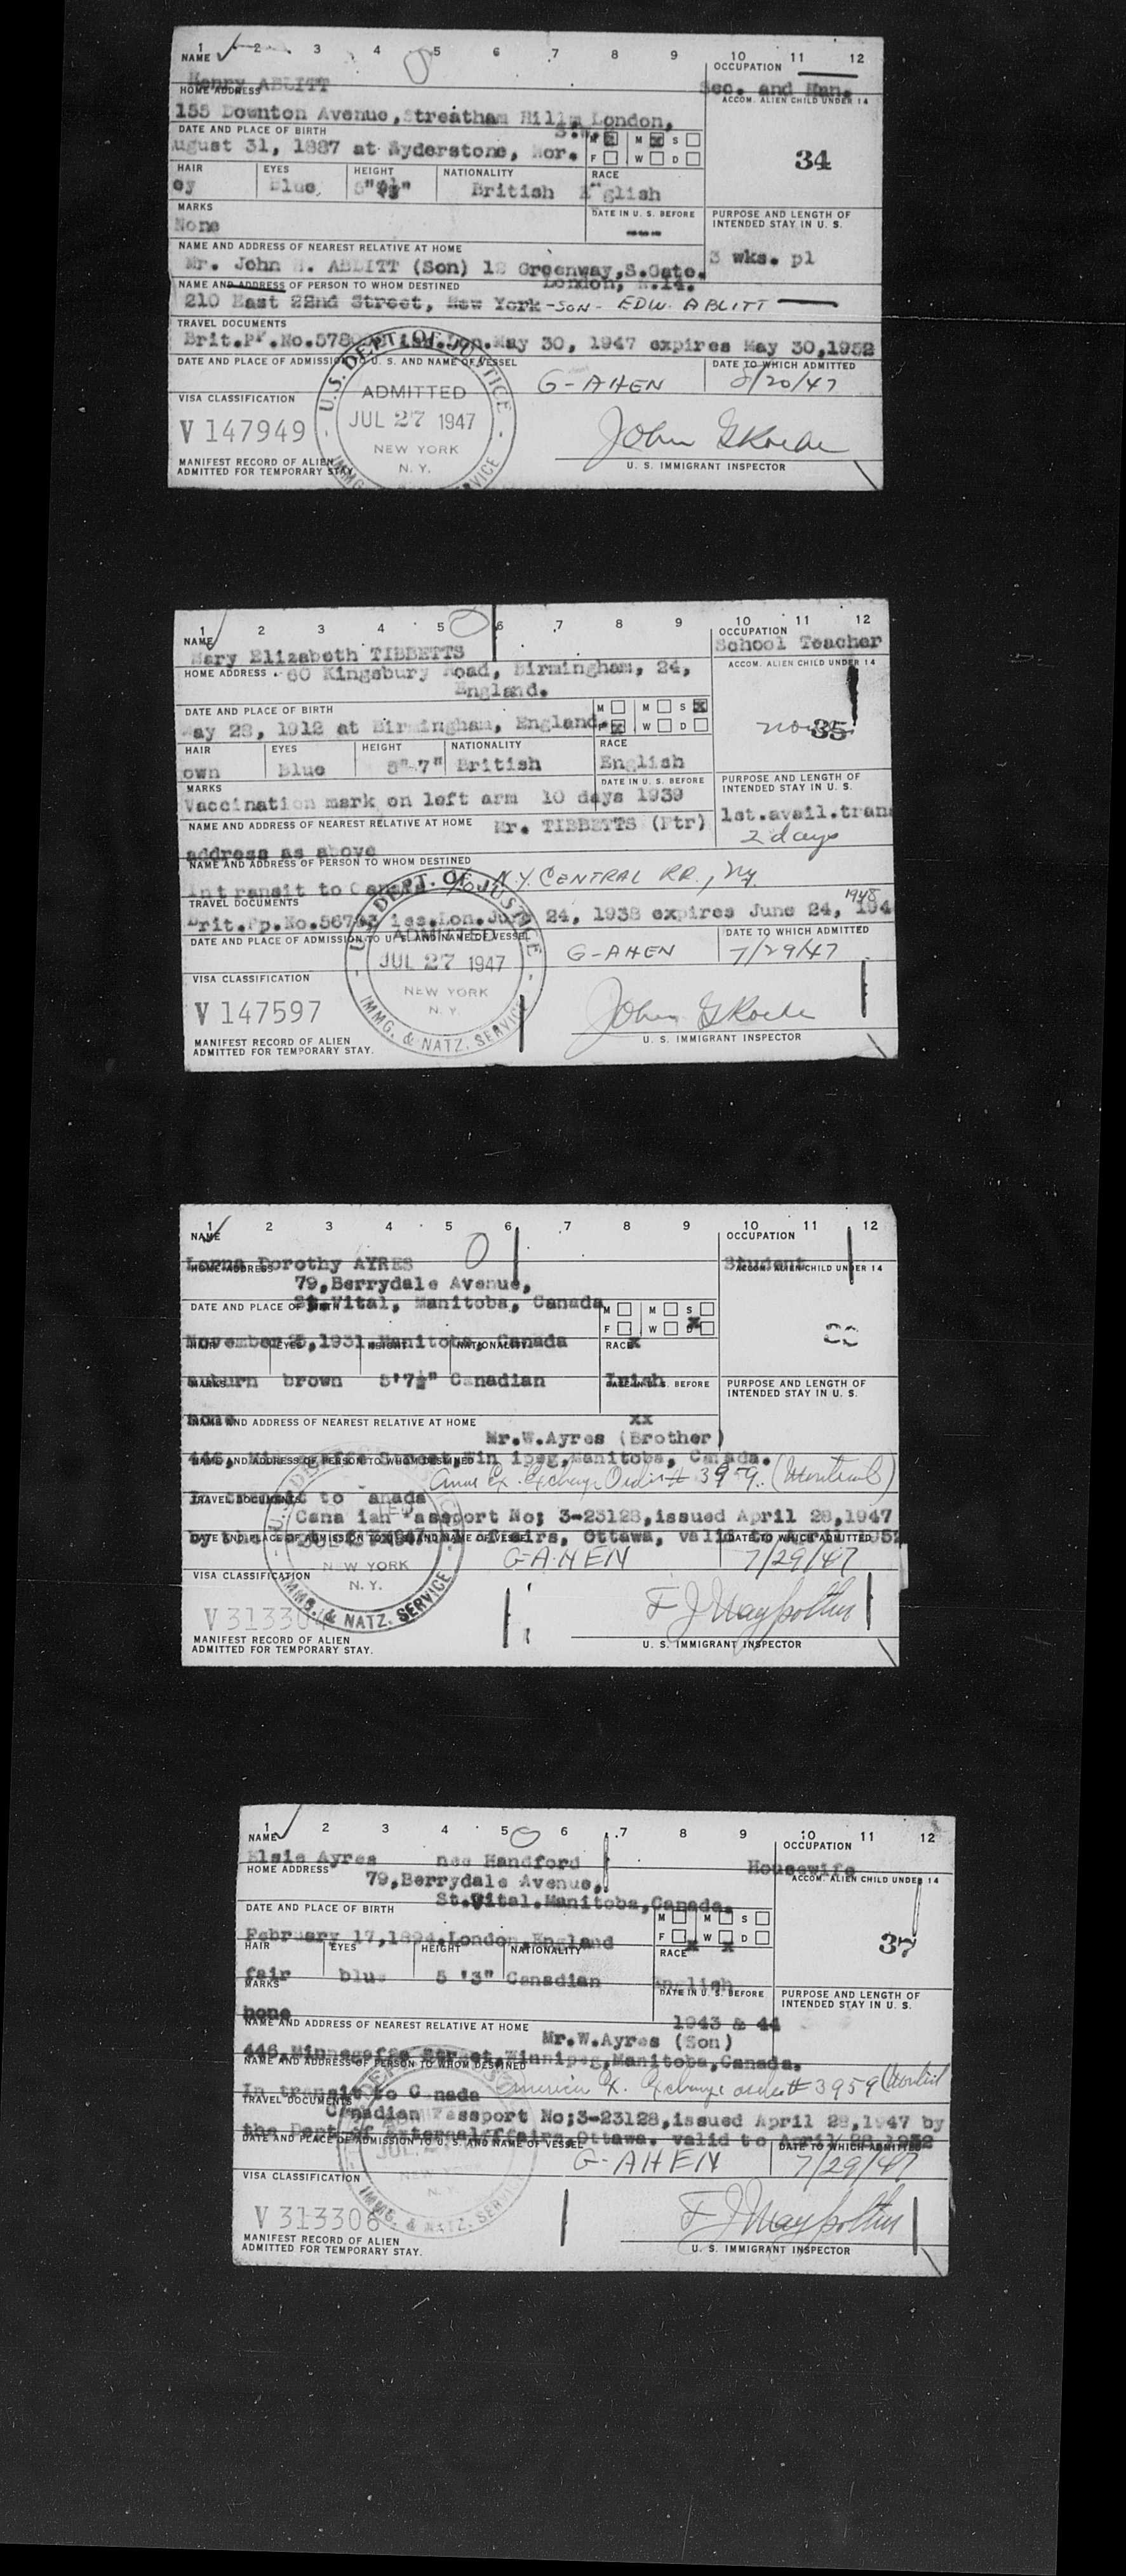 1 2 3 4 5 6 7 8 9 10 11 12
NAME OCCUPATION
Henry ABLITT Sec. and Man.
HOME ADDRESS ACCOM. ALIEN CHILD UNDER 14
155 Downton Avenue, Streatham Hill, London,
DATE AND PLACE OF BIRTH S.W.
M M S
ugust 31, 1887 at Syderstone, Nor.
F W D
34
HAIR EYES HEIGHT NATIONALITY RACE
ey Blue British English
MARKS DATE IN U. S. BEFORE PURPOSE AND LENGTH OF
INTENDED STAY IN U. S.
None ---
NAME AND ADDRESS OF NEAREST RELATIVE AT HOME 3 wks. pl
Mr. John H. ABLITT (Son) 18 Greenway, S.Gate.
NAME AND ADDRESS OF PERSON TO WHOM DESTINED London, N.14.
210 East 22nd Street, New York -SON- EDW. ABLITT
TRAVEL DOCUMENTS
May 30, 1947 expires May 30,1952
DATE AND PLACE OF ADMISSION TO U. S. AND NAME OF VESSEL DATE TO WHICH ADMITTED
G-AHEN
U.S. DEPT. OF JUSTICE
ADMITTED
JUL 27 1947
NEW YORK
N. Y.
IMMG. SERVICE
VISA CLASSIFICATION
V 147949
MANIFEST RECORD OF ALIEN
ADMITTED FOR TEMPORARY STAY.
U. S. IMMIGRANT INSPECTOR
1 2 3 4 5 6 7 8 9 10 11 12
NAME OCCUPATION
Mary Elizabeth TIBBETTS School Teacher
HOME ADDRESS 60 Kingsbury Road, Birmingham, 24, ACCOM. ALIEN CHILD UNDER 14
England.
DATE AND PLACE OF BIRTH M M S
ay 28, 1912 at Birmingham, England. F W D
35
HAIR EYES HEIGHT NATIONALITY RACE
own Blue 5"-7" British English
MARKS DATE IN U. S. BEFORE PURPOSE AND LENGTH OF
INTENDED STAY IN U. S.
Vaccination mark on left arm 10 days 1939
NAME AND ADDRESS OF NEAREST RELATIVE AT HOME Mr. TIBBETTS (Ftr) 1st.avail.trans
2 days
address as above
NAME AND ADDRESS OF PERSON TO WHOM DESTINED
In transit to Canada N.Y. CENTRAL RR., NY.
TRAVEL DOCUMENTS 1948
Brit.Pp.No.56793 iss.Lon.June 24, 1938 expires June 24, 194
DATE AND PLACE OF ADMISSION TO U. S. AND NAME OF VESSEL DATE TO WHICH ADMITTED
G-AHEN 7/29/47
U.S. DEPT. OF JUSTICE
ADMITTED
JUL 27 1947
NEW YORK
N. Y.
IMMG. & NATZ. SERVICE
VISA CLASSIFICATION
V 147597
MANIFEST RECORD OF ALIEN
ADMITTED FOR TEMPORARY STAY.
U. S. IMMIGRANT INSPECTOR
1 2 3 4 5 6 7 8 9 10 11 12
NAME OCCUPATION
Lorna Dorothy AYRES Student
HOME ADDRESS ACCOM. ALIEN CHILD UNDER 14
79,Berrydale Avenue,
DATE AND PLACE OF BIRTH St.Vital, Manitoba, Canada
M M S
F W D
November 25,1931 Manitoba, Canada
HAIR EYES HEIGHT NATIONALITY RACE
auburn brown 5'7½" Canadian Irish
MARKS DATE IN U. S. BEFORE PURPOSE AND LENGTH OF
INTENDED STAY IN U. S.
none xx
NAME AND ADDRESS OF NEAREST RELATIVE AT HOME
Mr.W.Ayres (Brother)
446, Street, Winnipeg,Manitoba, Canada.
NAME AND ADDRESS OF PERSON TO WHOM DESTINED
Amer Ex. Exchange Order # 3959. (Montreal)
In transit to Canada
TRAVEL DOCUMENTS
Canadian Passport No; 3-23128, issued April 28,1947
Ottawa,
DATE AND PLACE OF ADMISSION TO U. S. AND NAME OF VESSEL DATE TO WHICH ADMITTED
G-AHEN 7/29/47
NEW YORK
N. Y.
IMMG. & NATZ. SERVICE
VISA CLASSIFICATION
MANIFEST RECORD OF ALIEN
ADMITTED FOR TEMPORARY STAY.
U. S. IMMIGRANT INSPECTOR
1 2 3 4 5 6 7 8 9 10 11 12
NAME OCCUPATION
Elsie Ayres nee Handford Housewife
HOME ADDRESS ACCOM. ALIEN CHILD UNDER 14
79,Berrydale Avenue,
St.Vital.Manitoba,Canada.
DATE AND PLACE OF BIRTH M M S
F W D
February 17,1894.London,England
37
HAIR EYES HEIGHT NATIONALITY RACE
fair blue 5 '3" Canadian English
MARKS DATE IN U. S. BEFORE PURPOSE AND LENGTH OF
INTENDED STAY IN U. S.
none 1943 & 44
NAME AND ADDRESS OF NEAREST RELATIVE AT HOME
Mr.W.Ayres (Son)
446, Street,Winnipeg,Manitoba,Canada.
NAME AND ADDRESS OF PERSON TO WHOM DESTINED
American Ex. Exchange order # 3959 (Montreal
In transit to Canada
TRAVEL DOCUMENTS
Canadian Passport No;3-23128,issued April 28,1947 by
the Dept of External Affairs,Ottawa. valid to April 28 1952
DATE AND PLACE OF ADMISSION TO U. S. AND NAME OF VESSEL DATE TO WHICH ADMITTED
G-AHEN 7/29/47
VISA CLASSIFICATION
V 313306
MANIFEST RECORD OF ALIEN
ADMITTED FOR TEMPORARY STAY.
U. S. IMMIGRANT INSPECTOR